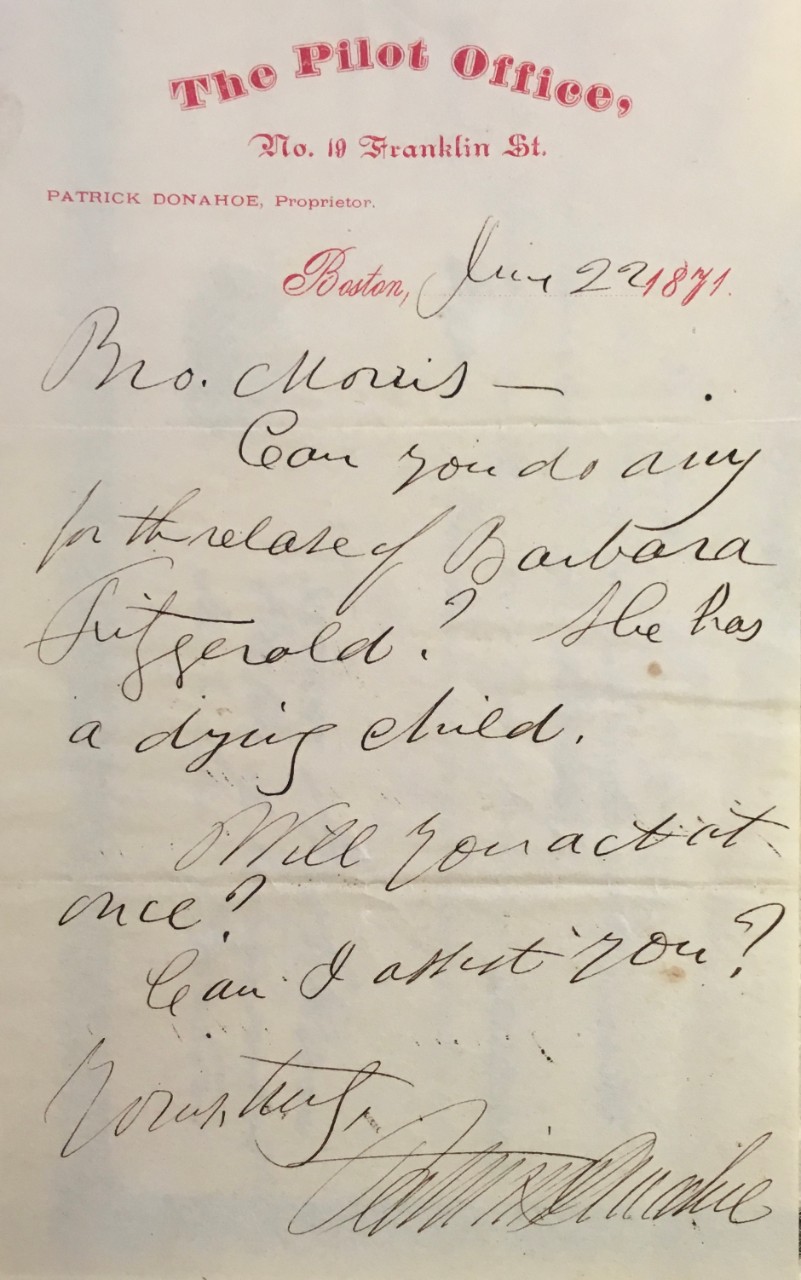 The Pilot Office,
No. 19 Franklin St.
PATRICK DONAHOE, Proprietor.
Boston, June 22 1871.
Bro. Morris —
Can you do any
for the relase of Barbara
Fitzgerald? She has
a dying child.
Will you act at
once?
Can I assist you?
Yours truly,
Patrick Donahoe